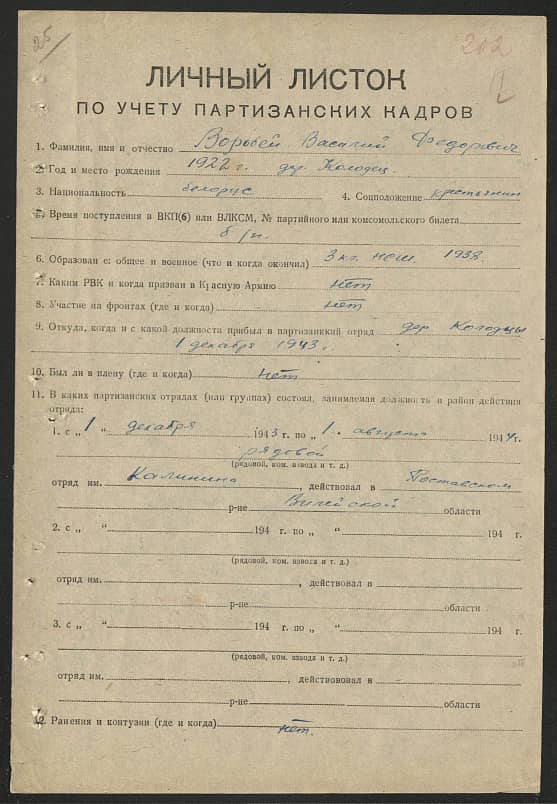 25/
202
12
ЛИЧНЫЙ ЛИСТОК
ПО УЧЕТУ ПАРТИЗАНСКИХ КАДРОВ
1. Фамилия, имя и отчество Воробей Василий Федорович
2. Год и место рождения 1922 г. дер. Колодец.
3. Национальность белорус 4. Соцположение крестьянин
5. Время поступления в ВКП(б) или ВЛКСМ, № партийного или комсомольского билета
б/п.
6. Образование: общее и военное (что и когда окончил) 3 кл. 1938.
7. Каким РВК и когда призван в Красную Армию нет
8. Участие на фронтах (где и когда) нет
9. Откуда, когда и с какой должности прибыл в партизанский отряд дер. Колодцы
1 декабря 1943 г.
10. Был ли в плену (где и когда) нет
11. В каких партизанских отрядах (или группах) состоял, занимаемая должность и район действия
отряда:
1. с „ 1 “ декабря 1943 г. по „ 1. августа 1944 г.
рядовой
(рядовой, ком. взвода и т. д.)
отряд им. Калинина, действовал в Поставском
р-не Вилейской области
2. с „ “ 194 г. по „ “ 194 г.
(рядовой, ком. взвода и т. д.)
отряд им. , действовал в
р-не области
3. с „ “ 194 г. по „ “ 194 г.
(рядовой, ком. взвода и т. д.)
отряд им. , действововал в
р-не области
12. Ранения и контузии (где и когда) нет.